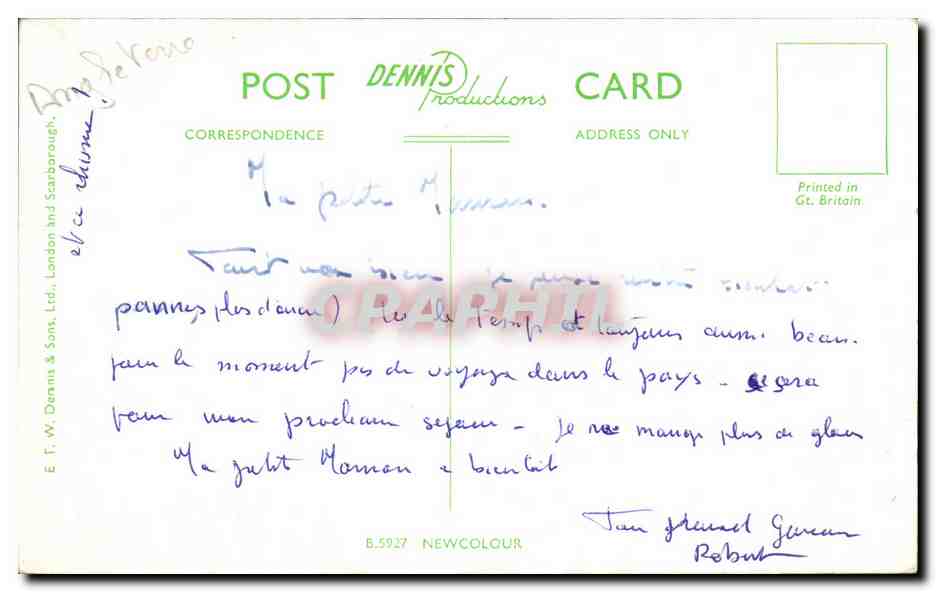 Angleterre
et ce rhume !
POST DENNIS Productions CARD
CORRESPONDENCE ADDRESS ONLY
Printed in
Gt. Britain
E. T. W. Dennis & Sons, Ltd., London and Scarborough.
Ma petite Maman.
Tout va bien je
pannes plus d'aucun) le temps est toujours aussi beau.
pour le moment pas de voyage dans le pays - sera
pour mon prochain séjour - Je ne mange plus de glaces
Ma petite Maman à bientôt
Ton grand Garçon
Robert
B.5927 NEWCOLOUR
CPAPHIL